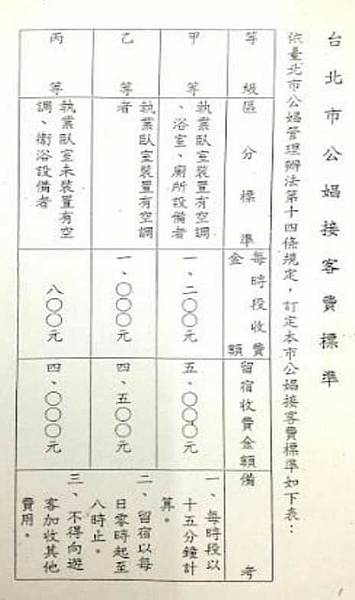 台北市公娼接客費標準
依臺北市公娼管理辦法第十四條規定，訂定本市公娼接客費標準如下表：
等級
區分標準
每時段收費金額
留宿收費金額
備考
甲等
執業臥室裝置有空調
、浴室、廁所設備者
一、二〇〇元
五、〇〇〇元
乙等
執業臥室裝置有空調
者
一、〇〇〇元
四、五〇〇元
丙等
執業臥室未裝置有空
調、衛浴設備者
八〇〇元
四、〇〇〇元
一、每時段以
十五分鐘計
算。
二、留宿以每
日零時起至
八時止。
三、不得向遊
客加收其他
費用。